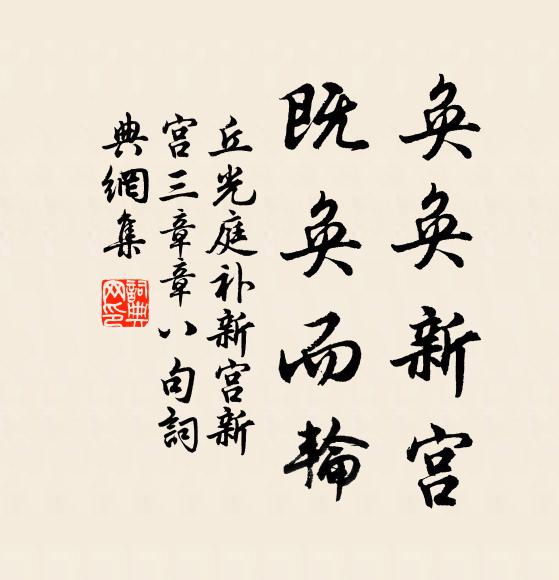 奐奐新宮
既奐而輪
丘光庭补新宮新
宮三章章八句詞
典網集
詞典
网印